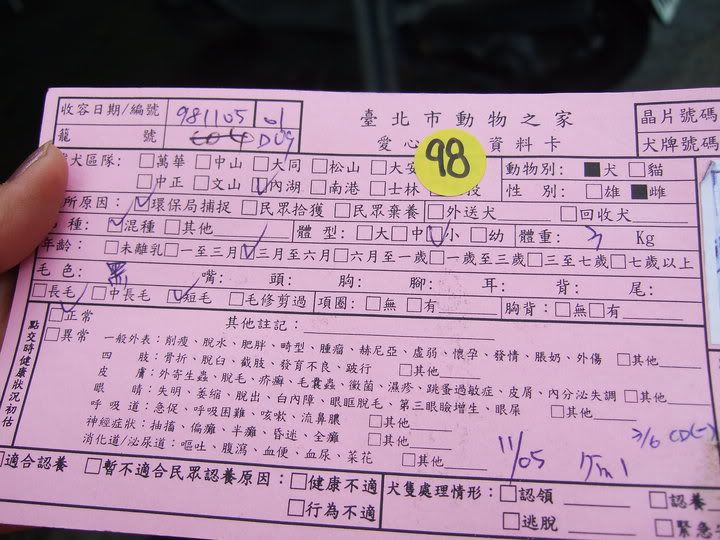 收容日期/編號 981105 01 臺北市動物之家 晶片號碼
籠 號 D09 愛心 98 資料卡 犬牌號碼
犬區隊: □萬華 □中山 □大同 □松山 □大安 動物別: ■犬 □貓
□中正 □文山 ☑內湖 □南港 □士林 □ 投 性 別: □雄 ■雌
所原因: ☑環保局捕捉 □民眾拾獲 □民眾棄養 □外送犬 □回收犬
種: ☑混種 □其他 體 型: □大 □中 ☑小 □幼 體重: 3 Kg
年齡: □未離乳 □一至三月 ☑三月至六月 □六月至一歲 □一歲至三歲 □三至七歲 □七歲以上
毛 色: 黑 嘴: 頭: 胸: 腳: 耳: 背: 尾:
□長毛 □中長毛 ☑短毛 □毛修剪過 項圈: □無 □有 胸背: □無 □有
點交時健康狀況初估
☑正常 其他註記:
□異常 一般外表: 削瘦、脫水、肥胖、畸型、腫瘤、赫尼亞、虛弱、懷孕、發情、脹奶、外傷 □其他
四 肢: 骨折、脫臼、截肢、發育不良、跛行 □其他
皮 膚: 外寄生蟲、脫毛、疥癬、毛囊蟲、黴菌、濕疹、跳蚤過敏症、皮屑、內分泌失調 □其他
眼 睛: 失明、萎縮、脫出、白內障、眼眶脫毛、第三眼瞼增生、眼屎 □其他
呼 吸 道: 急促、呼吸困難、咳嗽、流鼻膿 □其他
神經症狀: 抽搐、偏癱、半癱、昏迷、全癱 □其他
消化道/泌尿道: 嘔吐、腹瀉、血便、血尿、菜花 □其他
11/05 3/6 CD(-)
適合認養 □暫不適合民眾認養原因: □健康不適 犬隻處理情形: □認領 □認養
□行為不適 □逃脫 □緊急